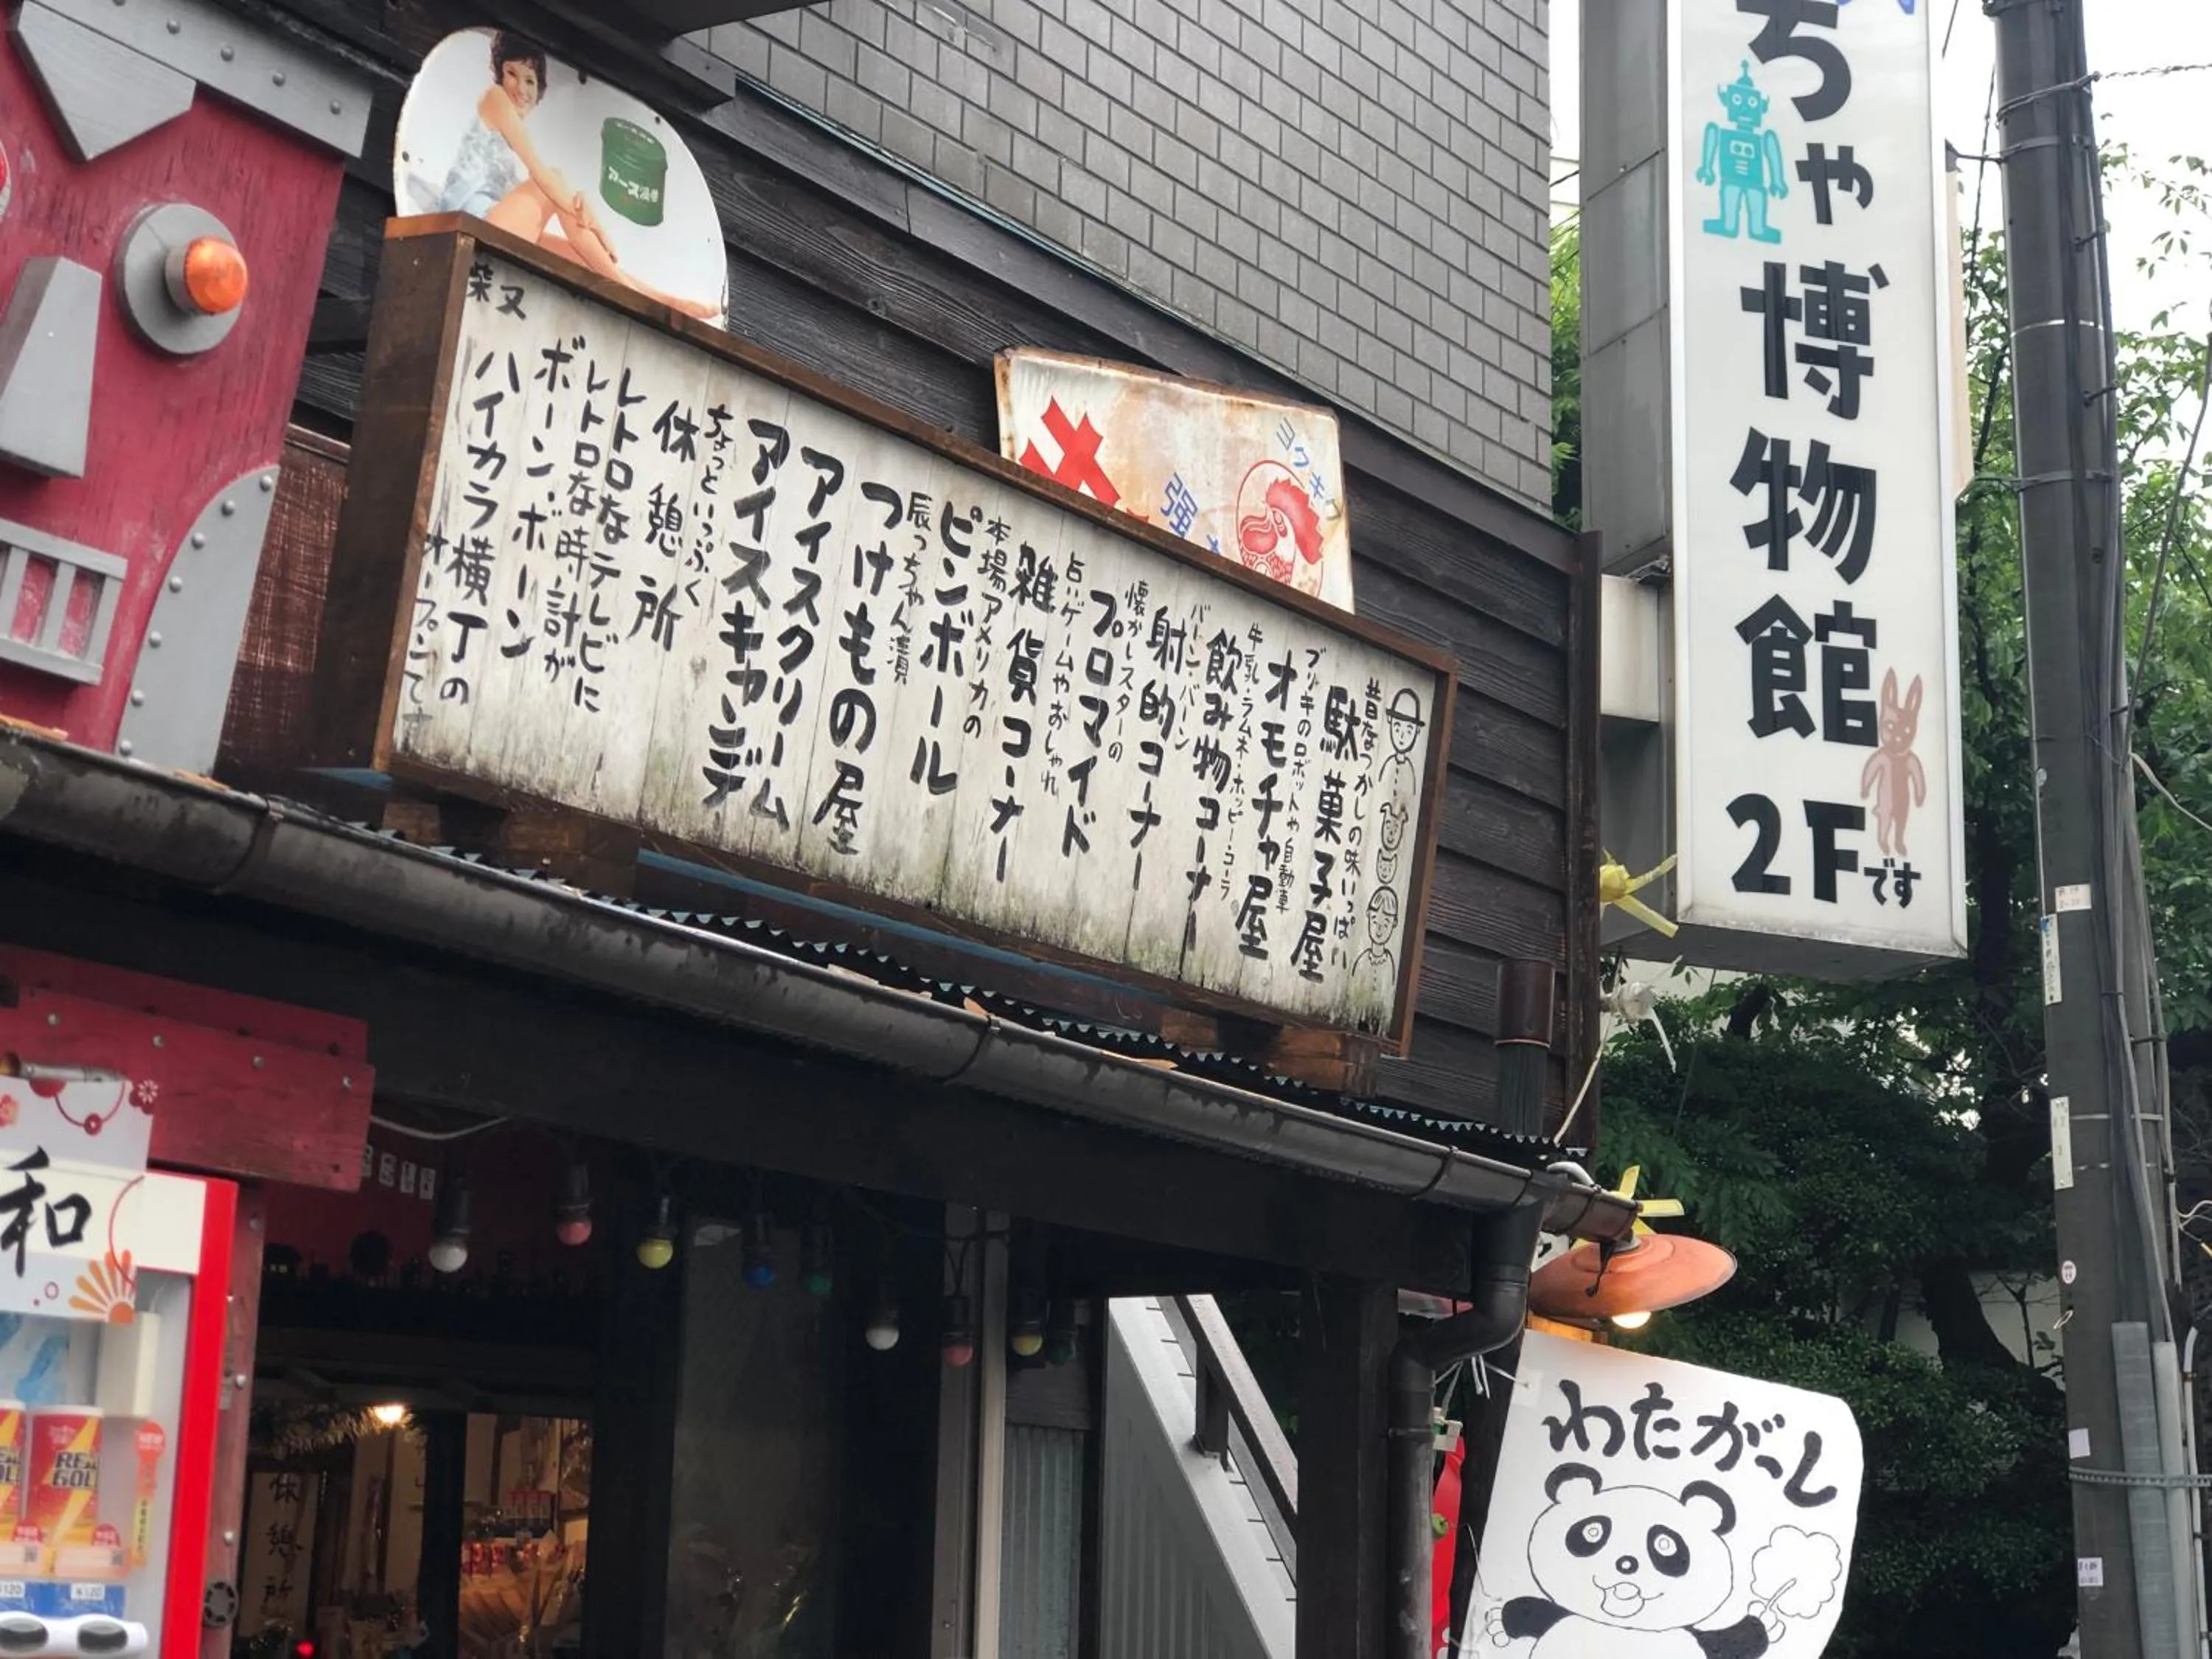 ちゃ博物館
2Fです
昔なつかしの味いっぱい
駄菓子屋
ブリキのロボットや自動車
オモチャ屋
牛乳・ラムネ・ホッピーコーラ
飲み物コーナー
バーン・バーン
射的コーナー
懐かしスターの
プロマイド
占いゲームやおしゃれ
雑貨コーナー
本場アメリカの
ピンボール
辰っちゃん漬
つけもの屋
アイスクリーム
アイスキャンデー
ちょっといっぷく
休憩所
レトロなテレビに
レトロな時計が
ボーン・ボーン
柴又
ハイカラ横丁の
オープンです
ヨウキ
強
アース渦巻
和
REAL
GOLD
¥120
¥120
休憩所
わたがっし